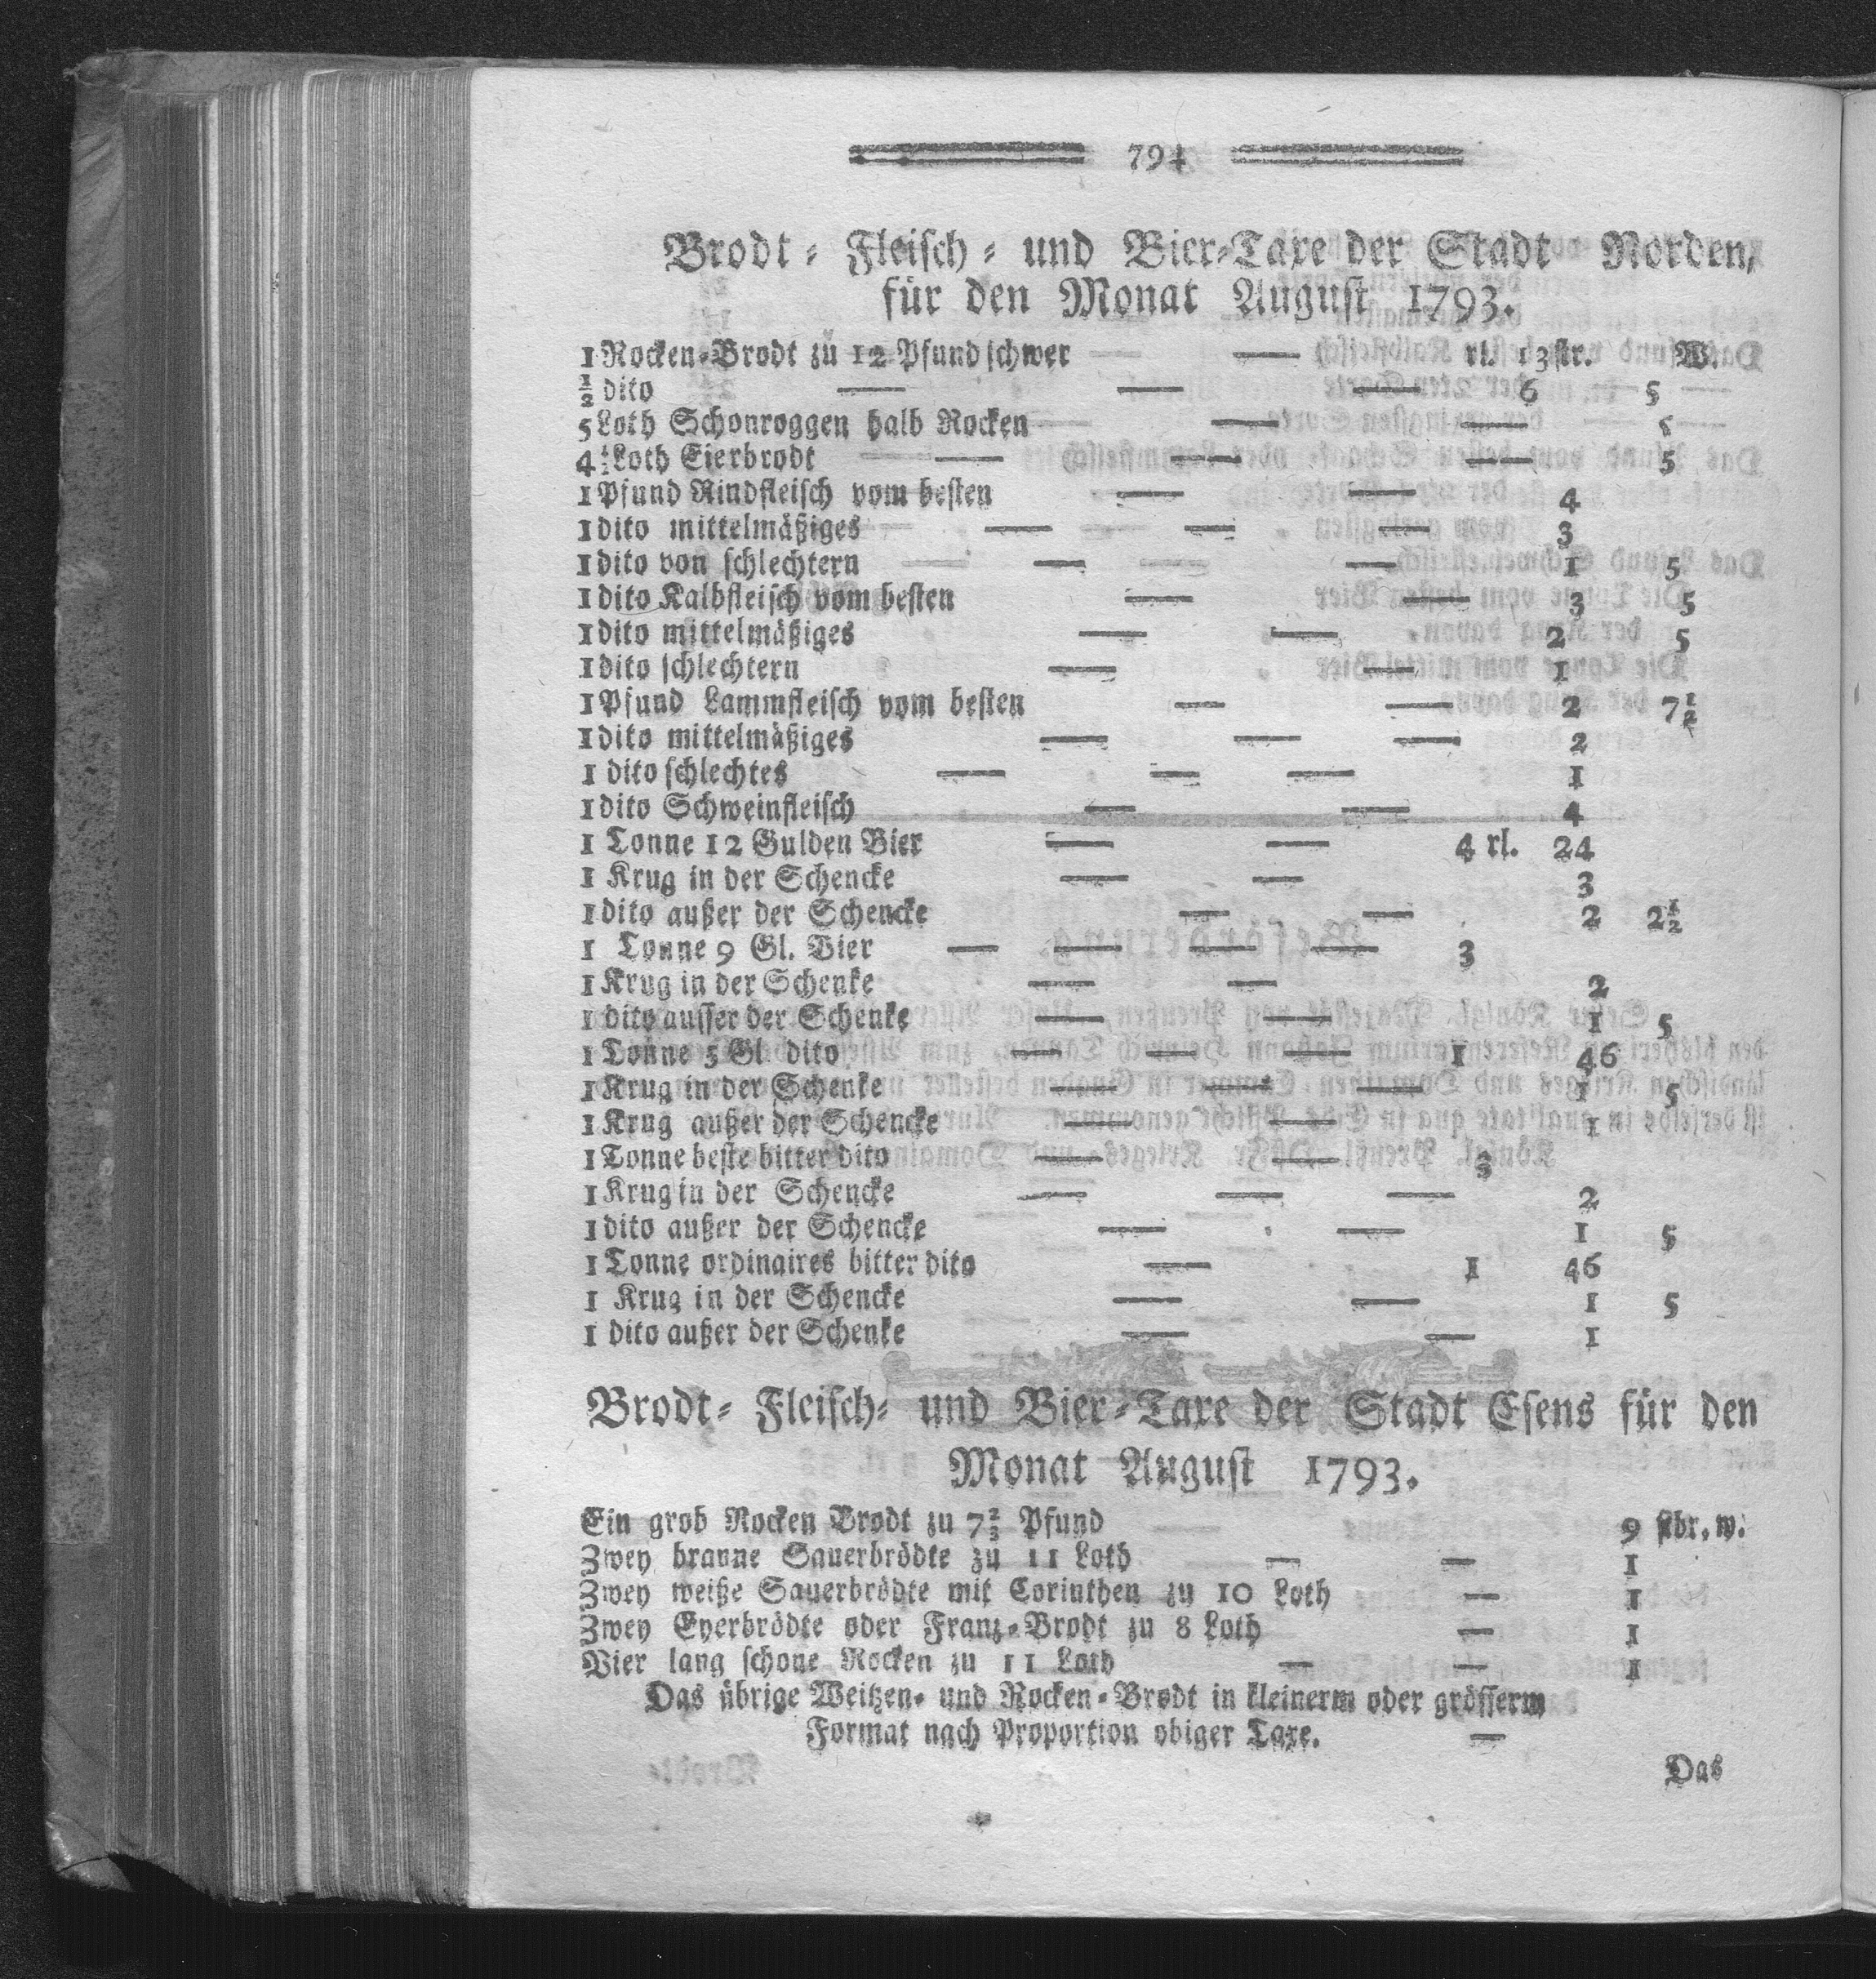 794
Brodt- Fleisch- und Bier-Taxe der Stadt Norden,
für den Monat August 1793.
1 Rocken-Brodt zu 12 Pfund schwer — rl. 13 str. W.
½ dito — — — 6 5
5 Loth Schonroggen halb Rocken — — 5
4½ Loth Eierbrodt — — — 5
1 Pfund Rindfleisch vom besten — — 4
1 dito mittelmäßiges — — — 3
1 dito von schlechtern — — 1 5
1 dito Kalbfleisch vom besten — — 3 5
1 dito mittelmäßiges — — 2 5
1 dito schlechtern — — 1
1 Pfund Lammfleisch vom besten — — 2 7½
1 dito mittelmäßiges — — — 2
1 dito schlechtes — — — 1
1 dito Schweinfleisch — — 4
1 Tonne 12 Gulden Bier — — 4 rl. 24
1 Krug in der Schencke — — 3
1 dito außer der Schencke — — 2 2½
1 Tonne 9 Gl. Bier — — — — 3
1 Krug in der Schenke — — 2
1 dito ausser der Schenke — — 1 5
1 Tonne 5 Gl dito — — — 1 46
1 Krug in der Schenke — — — 1 5
1 Krug außer der Schencke — — 1
1 Tonne beste bitter dito — — 3
1 Krug in der Schencke — — — 2
1 dito außer der Schencke — — 1 5
1 Tonne ordinaires bitter dito — 1 46
1 Krug in der Schencke — — 1 5
1 dito außer der Schenke — — 1
Brodt- Fleisch- und Bier-Taxe der Stadt Esens für den
Monat August 1793.
Ein grob Rocken Brodt zu 7⅔ Pfund 9 stbr. w.
Zwey braune Sauerbrödte zu 11 Loth — — 1
Zwey weiße Sauerbrödte mit Corinthen zu 10 Loth — 1
Zwey Eyerbrödte oder Franz-Brodt zu 8 Loth — 1
Vier lang schone Rocken zu 11 Loth — — 1
Das übrige Weitzen- und Rocken-Brodt in kleinerm oder grösserm
Format nach Proportion obiger Taxe. —
Das